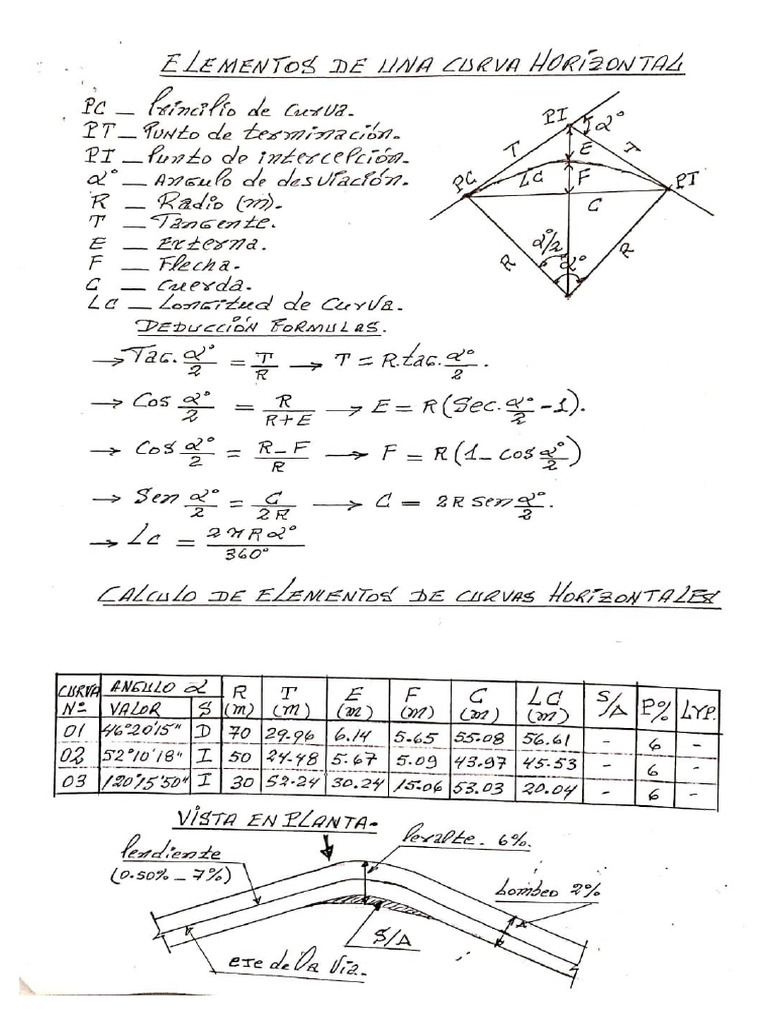 ELEMENTOS DE UNA CURVA HORIZONTAL
PC — Principio de curva.
PT — Punto de terminación.
PI — Punto de intercepción.
α° — Angulo de desviación.
R — Radio (m).
T — Tangente.
E — Externa.
F — Flecha.
C — Cuerda.
LC — Longitud de Curva.
PI
α°
T
T
E
PC
LC
F
PT
C
α°/2
α°
R
R
DEDUCCIÓN FORMULAS.
→ Tag. α°/2 = T/R → T = R.tag. α°/2.
→ Cos α°/2 = R/R+E → E = R(Sec. α°/2 - 1).
→ Cos α°/2 = R-F/R → F = R(1 - cos α°/2)
→ Sen α°/2 = C/2R → C = 2R sen α°/2.
→ Lc = 2πRα°/360°
CALCULO DE ELEMENTOS DE CURVAS HORIZONTALES
CURVA Nº ANGULO α VALOR S R (m) T (m) E (m) F (m) C (m) LC (m) S/A P% LTP.
01 46°20'15" D 70 29.96 6.14 5.65 55.08 56.61 - 6 -
02 52°10'18" I 50 24.48 5.67 5.09 43.97 45.53 - 6 -
03 120°15'50" I 30 52.24 30.24 15.06 53.03 20.04 - 6 -
VISTA EN PLANTA.
Pendiente
(0.50% - 7%)
Peralte. 6%.
bombeo 2%
S/A
eje de la Vía.